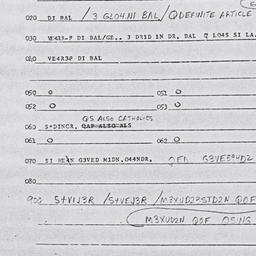 020 DI BAL / 3 GLO4.NI BAL / Q DEFINITE ARTICLE
030 VE4R3-F DI BAL/GE.. 3 DRID IN DR, BAL Q LO4S SI LA.
040 VE4R3F DI BAL
050 0 051 0
052 0 053 0
QS ALSO CATHOLICS
060 S+DINCR, QAF ALSO ALS
061 0 062 0
070 SI MEAN G3VED MIDN,O44NDR, QFA G3VE594D2
080
900 S+VIJ3R / S+VEJ3R / M3XUD23STD2N QOF
M3XUD2N QOF QSING